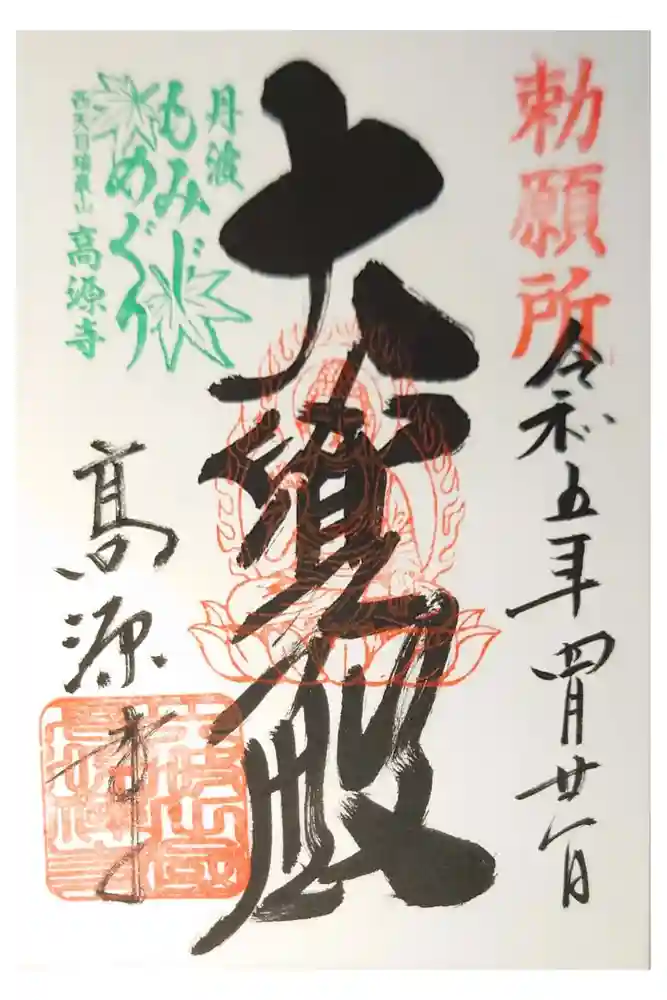 勅願所
令和五年四月廿一日
大寳殿
丹波
もみじ
めぐり
西天目瑞巌山 高源寺
高源寺